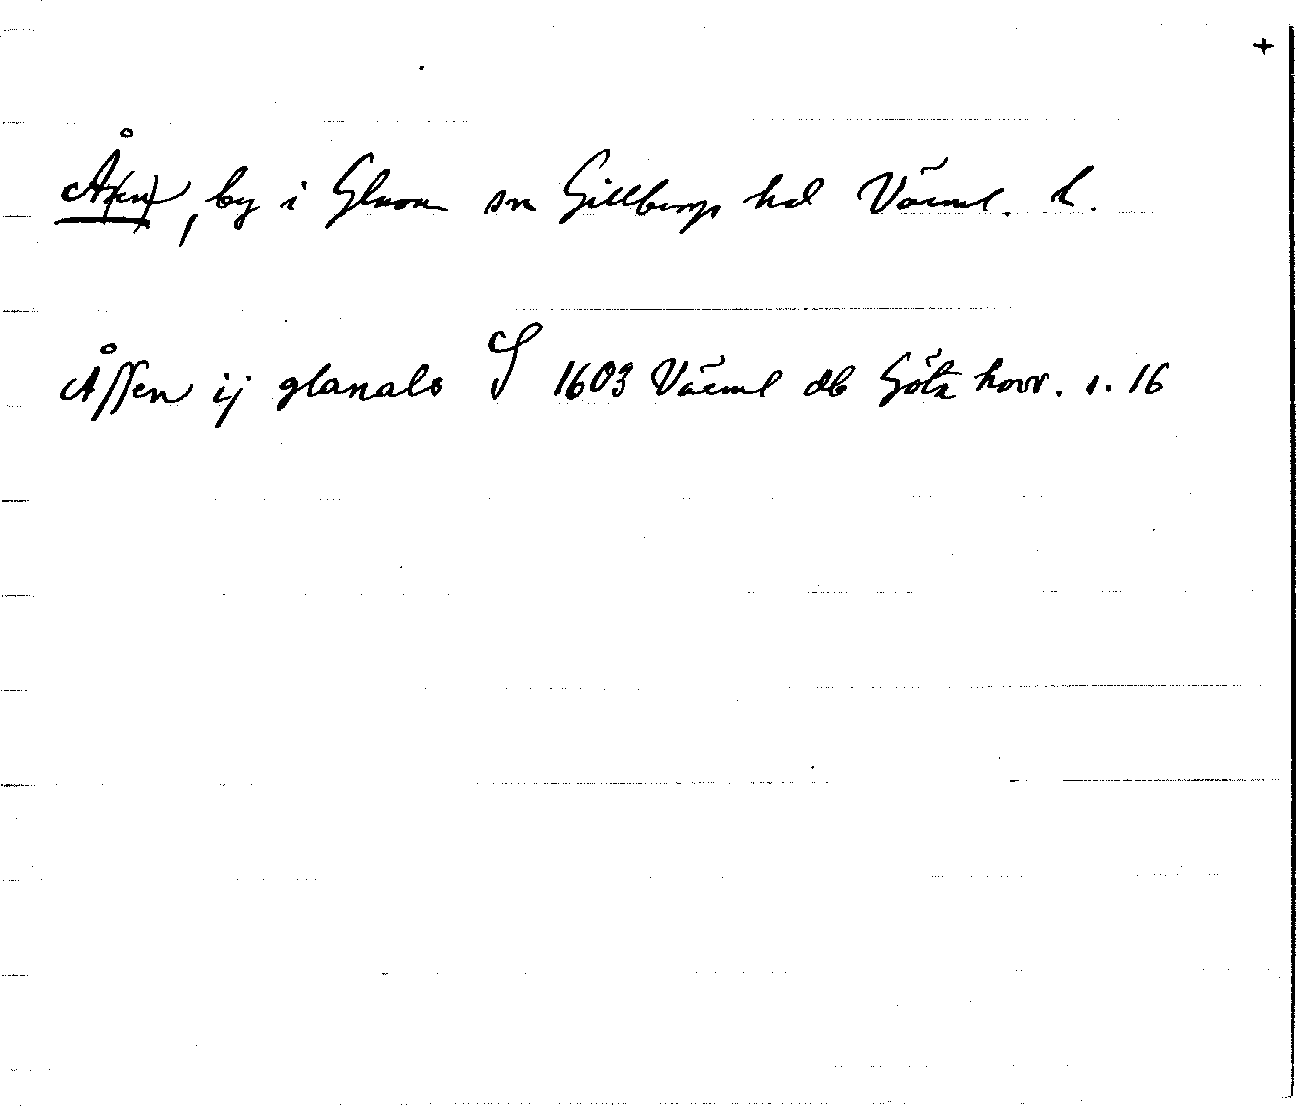 +
Å(en), by i Glava sn Gillbergs hd Värml. l.
Åssen ij glanals S 1603 Värml db Göta hovr. s. 16